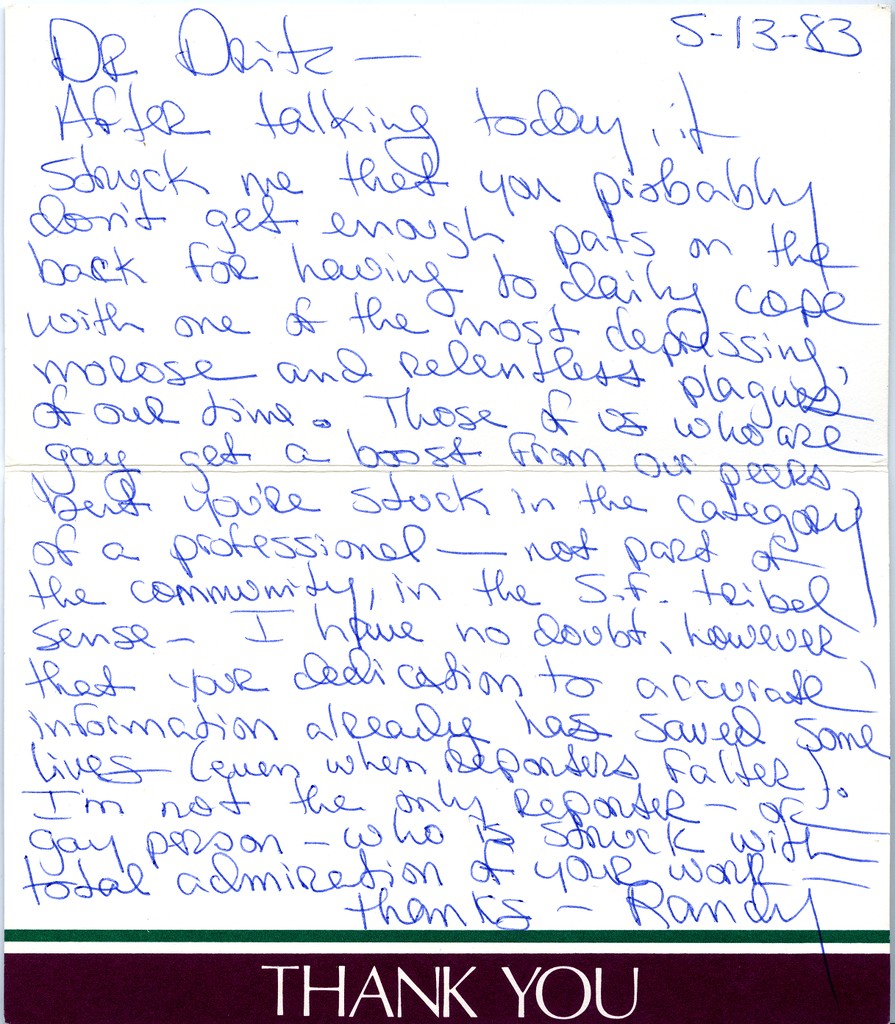 5-13-83
DR Dritz —
After talking today, it
struck me that you probably
don't get enough pats on the
back for having to daily cope
with one of the most depressing,
morose and relentless plagues
of our time. Those of us who are
gay get a boost from our peers,
but you're stuck in the category
of a professional — not part of
the community, in the S.F. tribal
sense — I have no doubt, however,
that your dedication to accurate
information already has saved some
lives (even when reporters falter).
I'm not the only reporter — or
gay person — who is struck with
total admiration of your work —
thanks — Randy
THANK YOU